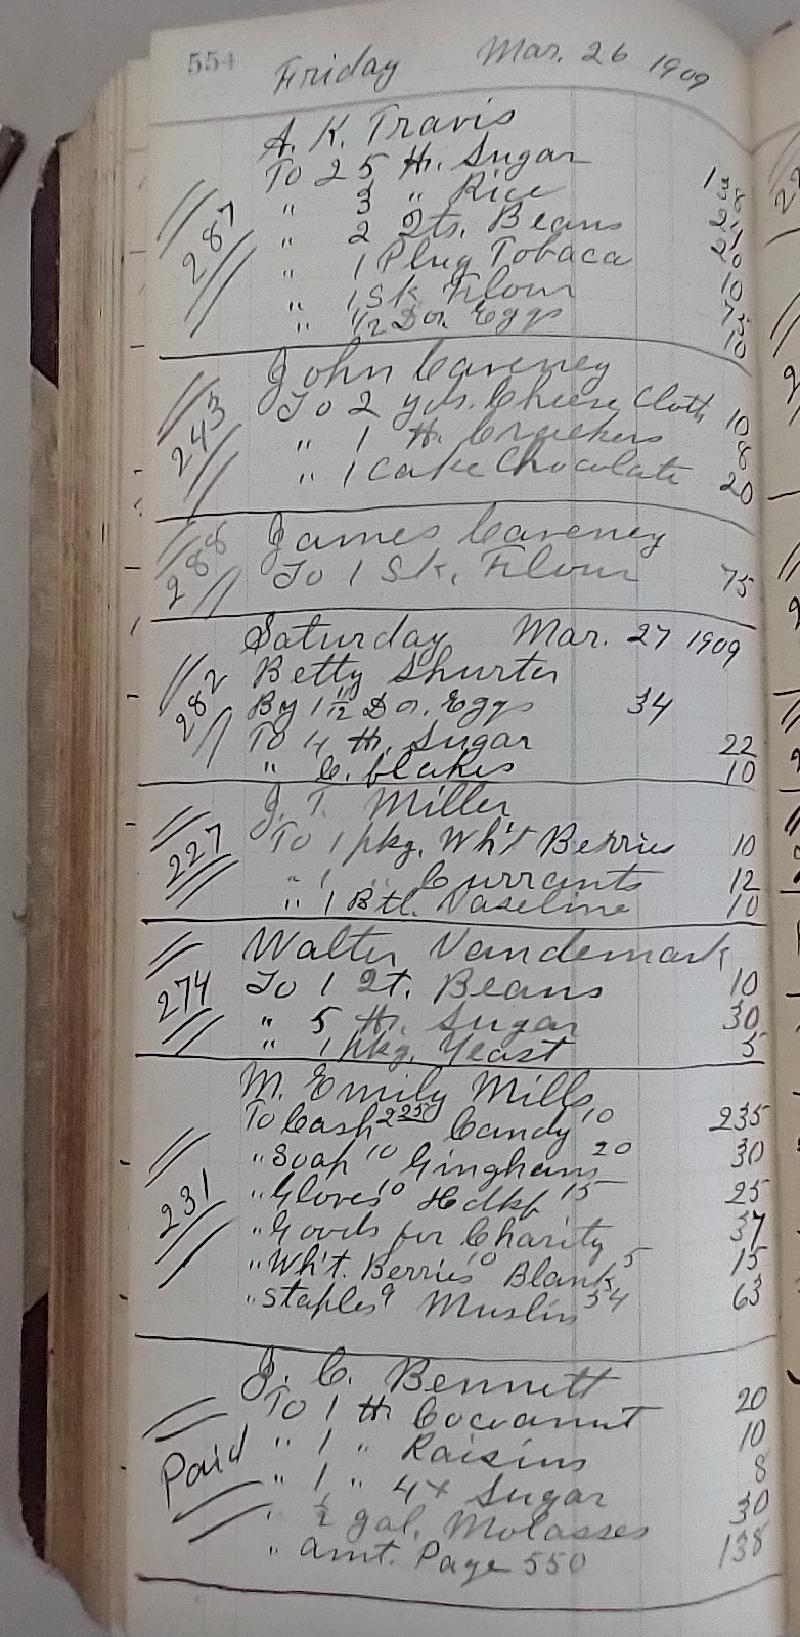 554 Friday Mar. 26 1909
A. K. Travis
To 25 lb. Sugar
" 3 " Rice
287 " 2 Qts. Beans
" 1 Plug Tobaca 10
" 1 Sk. Flour
" 1/2 Doz. Eggs
John Caveney
To 2 yds. Cheese Cloth 10
243 " 1 lb. Crackers 8
" 1 Cake Chocolate 20
James Caveney
288 To 1 Sk. Flour 75
Saturday Mar. 27 1909
282 Betty Shurter
By 1 11/12 Doz. Eggs 34
To 4 lb. Sugar 22
" C. flakes 10
J. T. Miller
227 To 1 pkg. Wh't Berries 10
" 1 " Currants 12
" 1 Btl. Vaseline 10
Walter Vandemark
274 To 1 Qt. Beans 10
" 5 lb. Sugar 30
" 1 pkg. Yeast 5
M. Emily Mills
To Cash 225 Candy 10 235
" Soap 10 Gingham 20 30
231 " Gloves 10 Hdkf 15 25
" Goods for Charity 37
" Wh't. Berries 10 Blank 5 15
" Staples 9 Muslin 54 63
J. C. Bennett
To 1 lb Cocoanut 20
Paid " 1 " Raisins 10
" 1 " 4x Sugar 8
" 1/2 gal. Molasses 30
" amt. Page 550 138